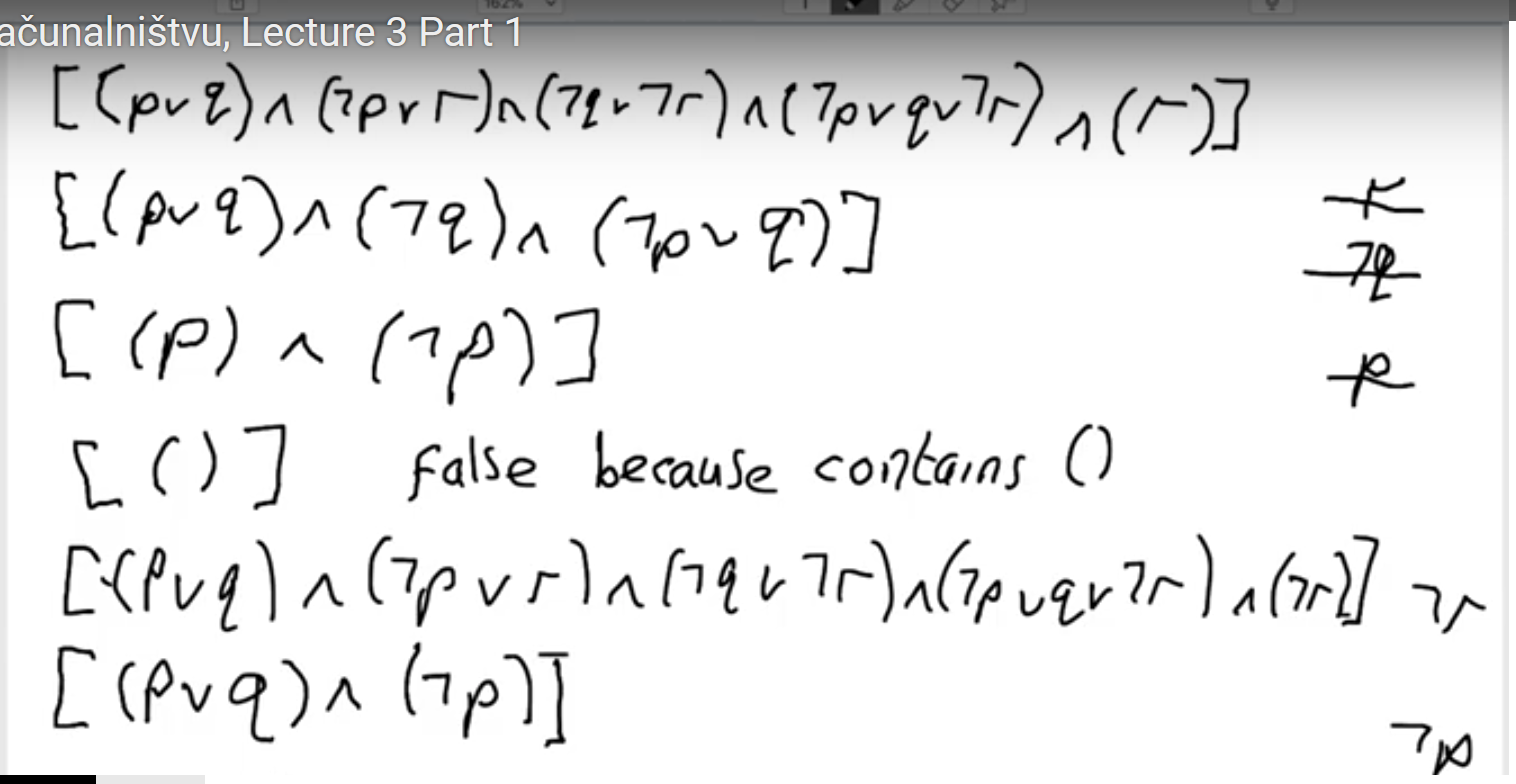 162%
ačunalništvu, Lecture 3 Part 1
[(p∨q)∧(¬p∨r)∧(¬q∨¬r)∧(¬p∨q∨¬r)∧(r)]
[(p∨q)∧(¬q)∧(¬p∨q)] r
¬q
[(p)∧(¬p)] p
[()] false because contains ()
[(p∨q)∧(¬p∨r)∧(¬q∨¬r)∧(¬p∨q∨¬r)∧(¬r)] ¬r
[(p∨q)∧(¬p)]
¬p